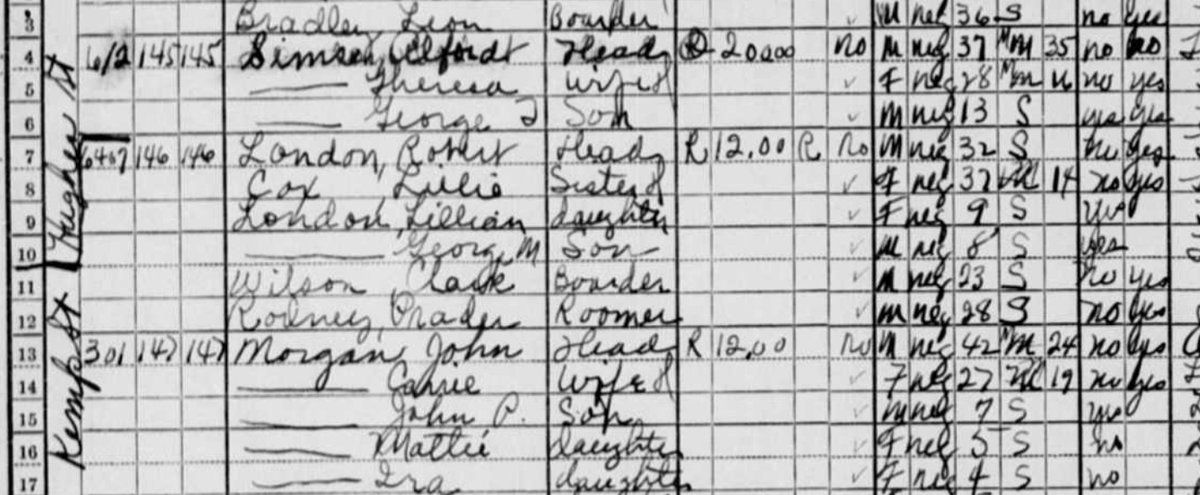 3 Bradley, Leon Boarder ✓ M neg 36 S no yes
4 612 145 145 Simson, Head O 20000 no M neg 37 M 35 no no
5 —— Theresa Wife ✓ F neg 28 M 16 no yes
6 —— George Son ✓ M neg 13 S yes yes
7 6407 146 146 London, Robert Head R 12.00 R no M neg 32 S no yes
8 Cox Lillie Sister ✓ F neg 37 14 no yes
9 London, Lillian daughter ✓ F neg 9 S yes
10 —— George M Son ✓ M neg 8 S yes
11 Wilson Clark Boarder ✓ M neg 23 S no yes
12 Rodney, Roomer ✓ M neg 28 S no yes
13 301 147 147 Morgan, John Head R 12.00 no M neg 42 M 24 no yes
14 —— Carrie Wife ✓ F neg 27 M 19 no yes
15 —— John P. Son ✓ M neg 7 S yes
16 —— Mattie daughter ✓ F neg 5 S no
17 —— Ira daughter ✓ F neg 4 S no
Hughes St
Kemp St